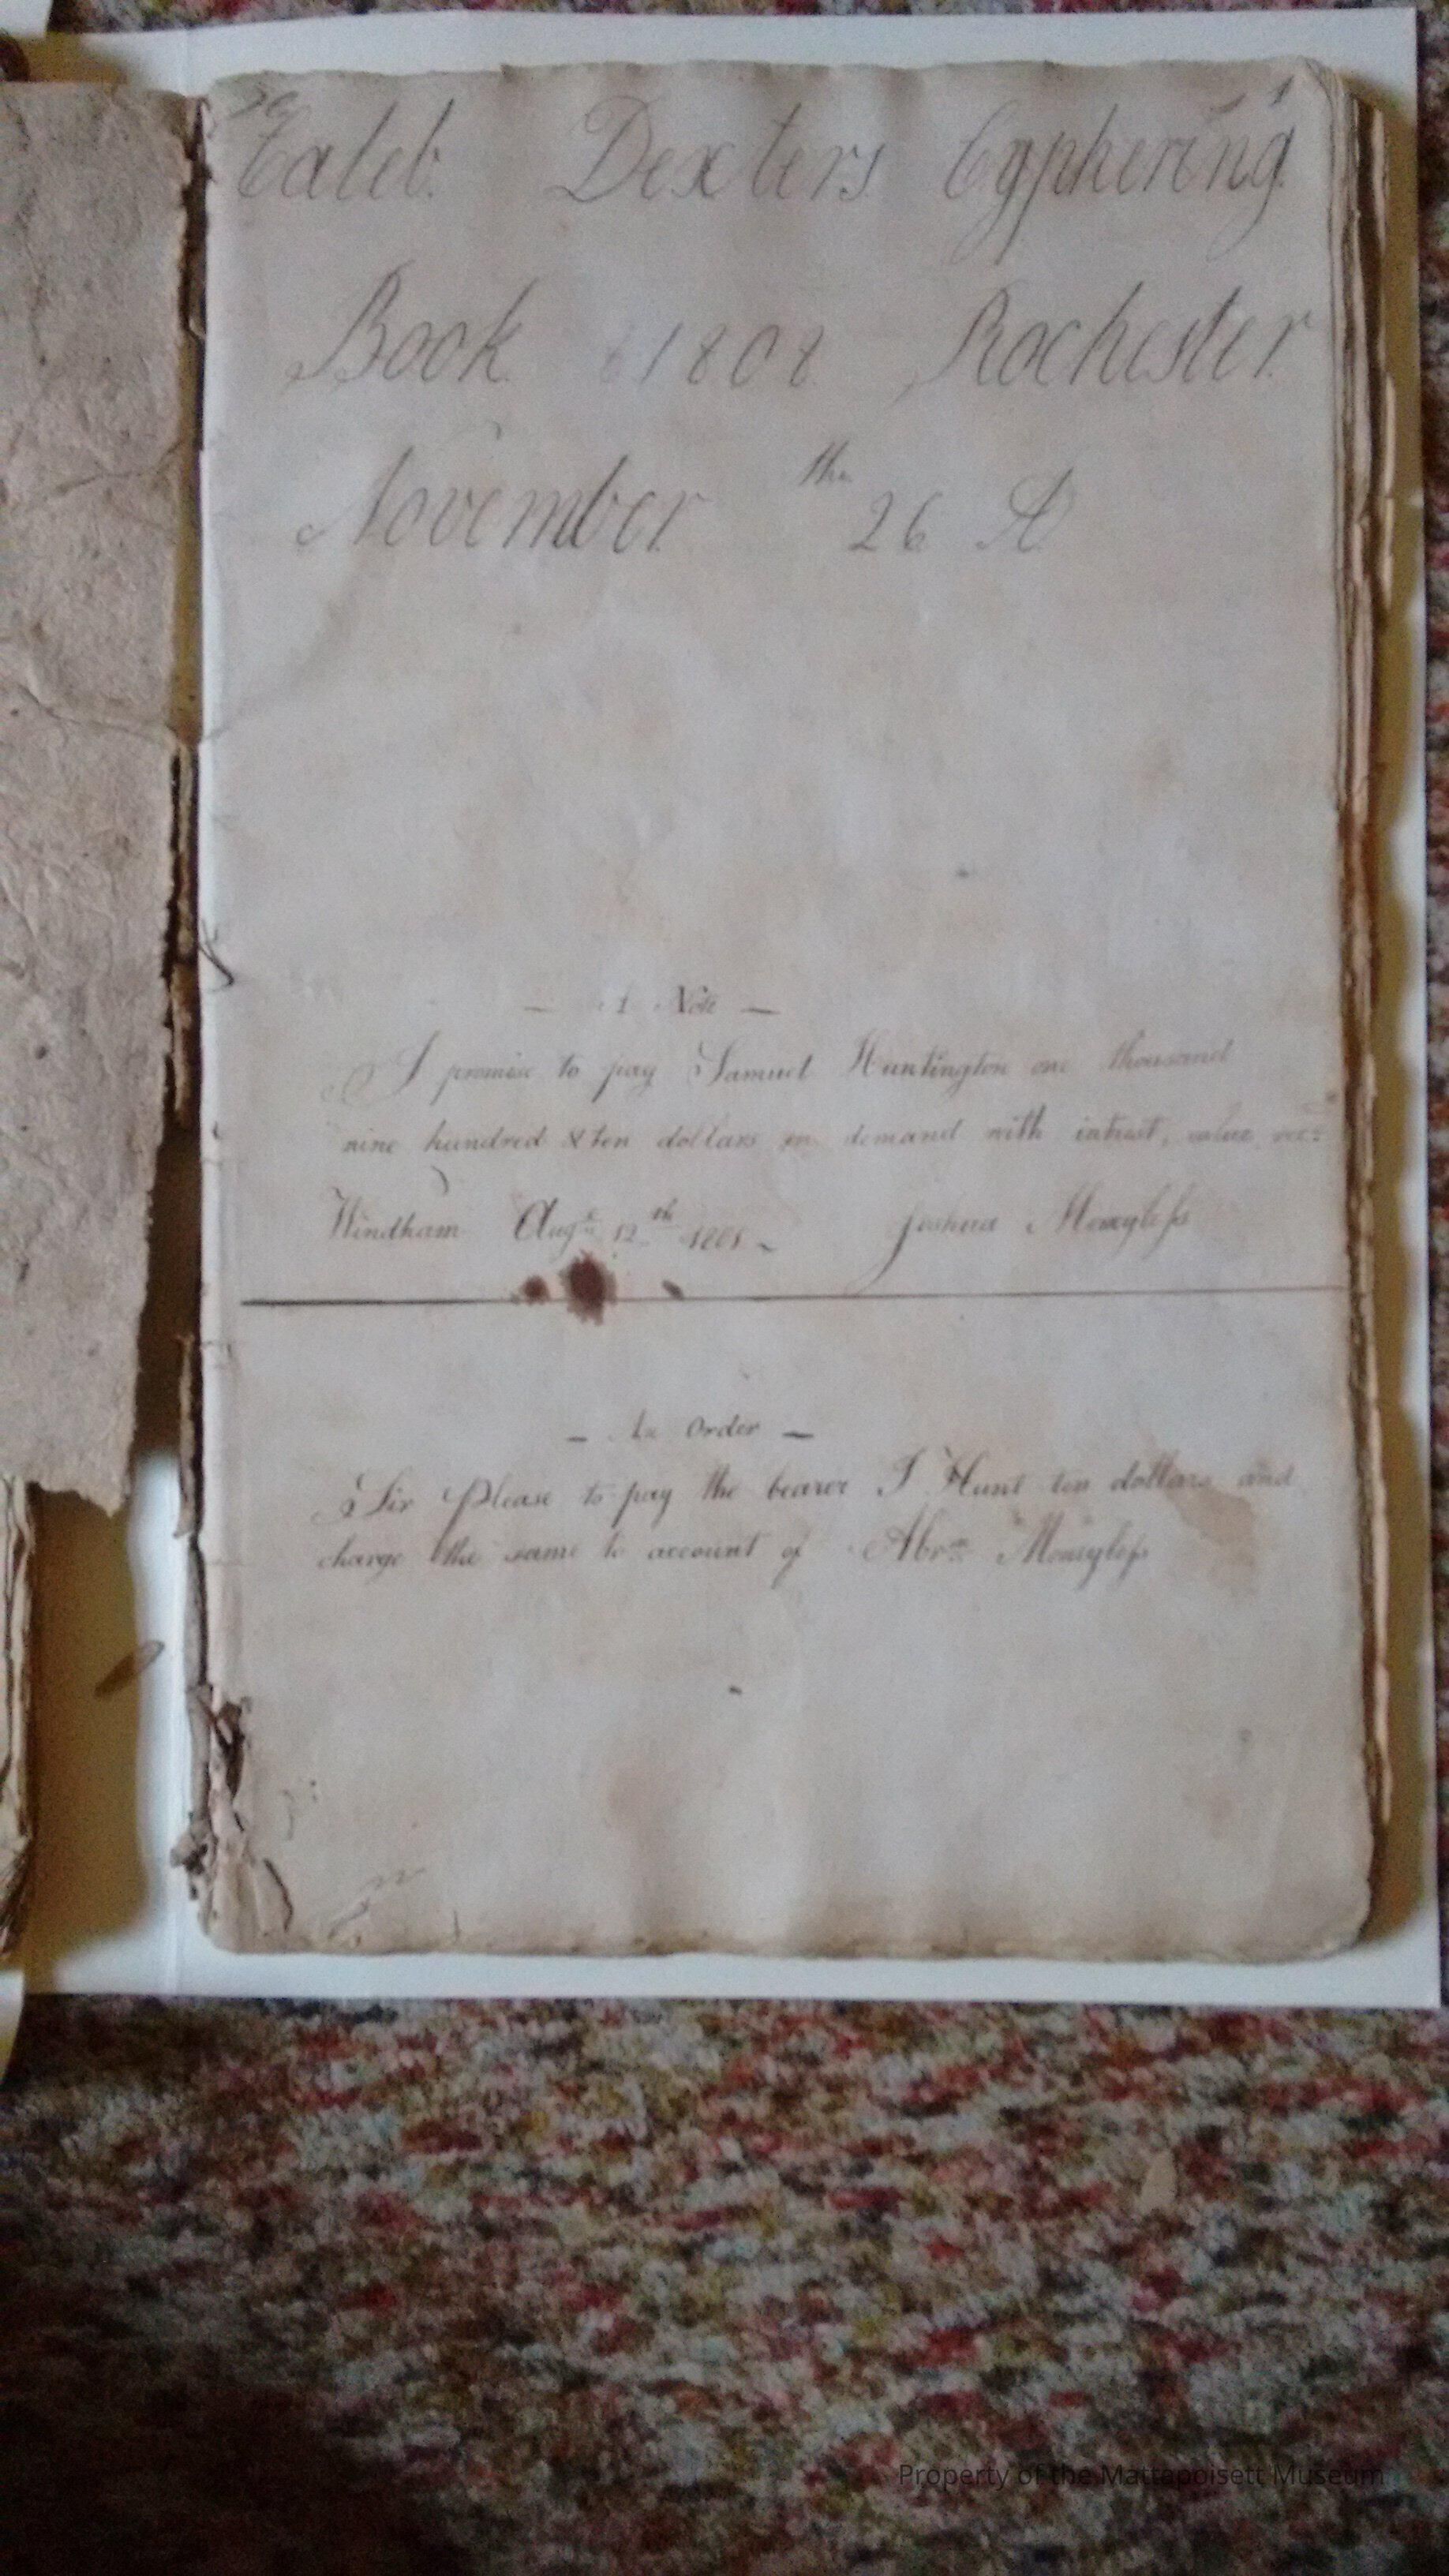 Caleb Dexters Cyphering
Book 1808 Rochester
November the 26 A
– A Note –
I promise to pay Samuel Huntington one thousand
nine hundred & ten dollars on demand with intrest, value rec.d
Windham Aug.t 12th 1801 – Joshua Moneyless
– An Order –
Sir Please to pay the bearer I Hunt ten dollars and
charge the same to account of Abrm Moneyless
Property of the Mattapoisett Museum